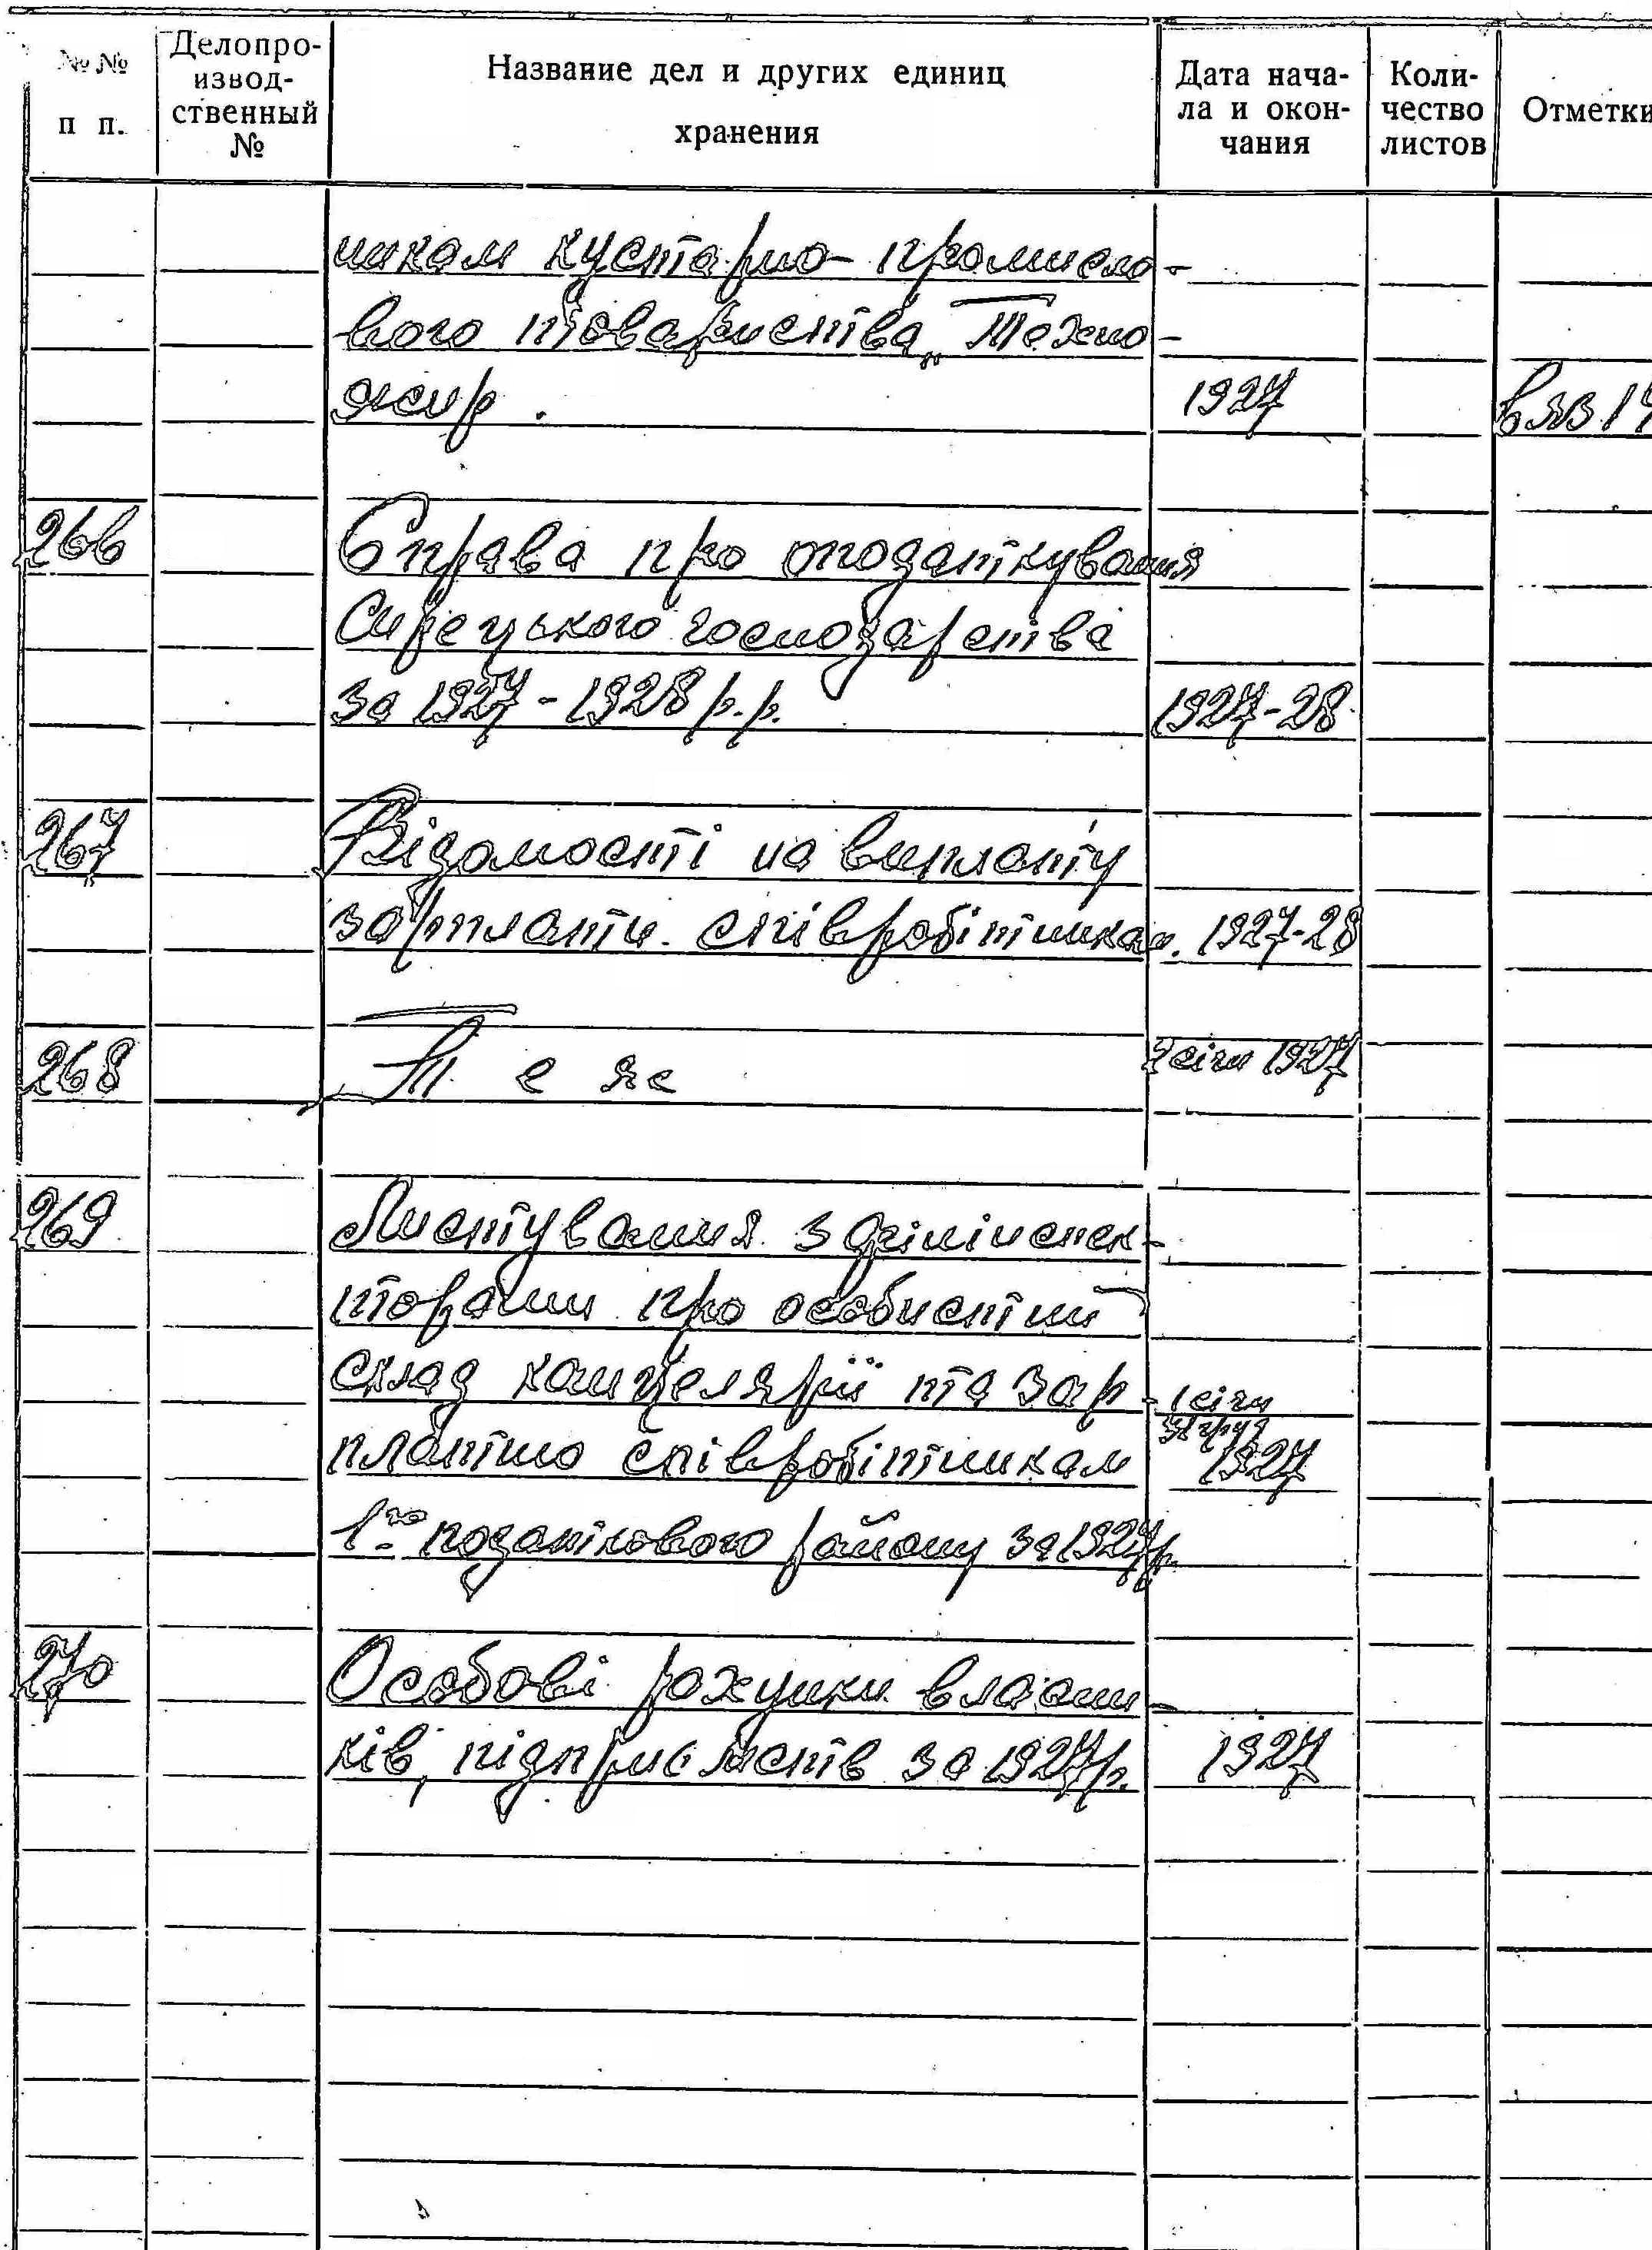 № № п п.
Делопро-изводственный №
Название дел и других единиц хранения
Дата начала и окончания
Количество листов
Отметки
никам кустарно-промисло-
вого товариства „Техно-
жир. 1927 вяз. 14
266 Справа про оподаткування
Сирецького господарства
за 1927-1928 р.р. 1927-28
267 Відомості на виплату
зарплати співробітникам. 1927-28
268 Те же 2 січн 1927
269 Листування з фінінспек-
торами про особистий
склад канцелярії та зар- 1 січн
31 груд
платню співробітникам 1927
1го податкового району за 1927 р.
270 Особові рахунки власни-
ків, підприємств за 1927 р. 1927